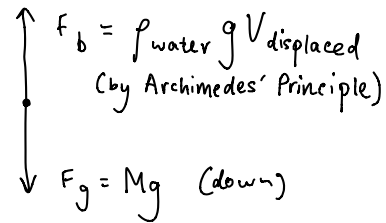 F_b = ρ_water g V_displaced
(by Archimedes' Principle)
F_g = Mg (down)